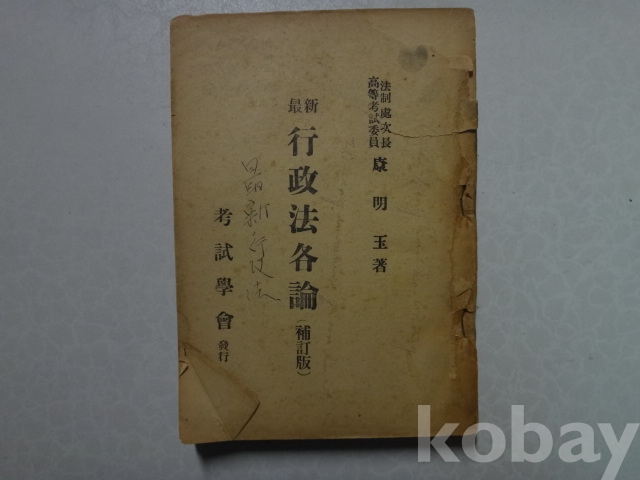 法制處次長
高等考試委員
康明玉著
最新
行政法各論(補訂版)
最新行政法
考試學會發行
kobay